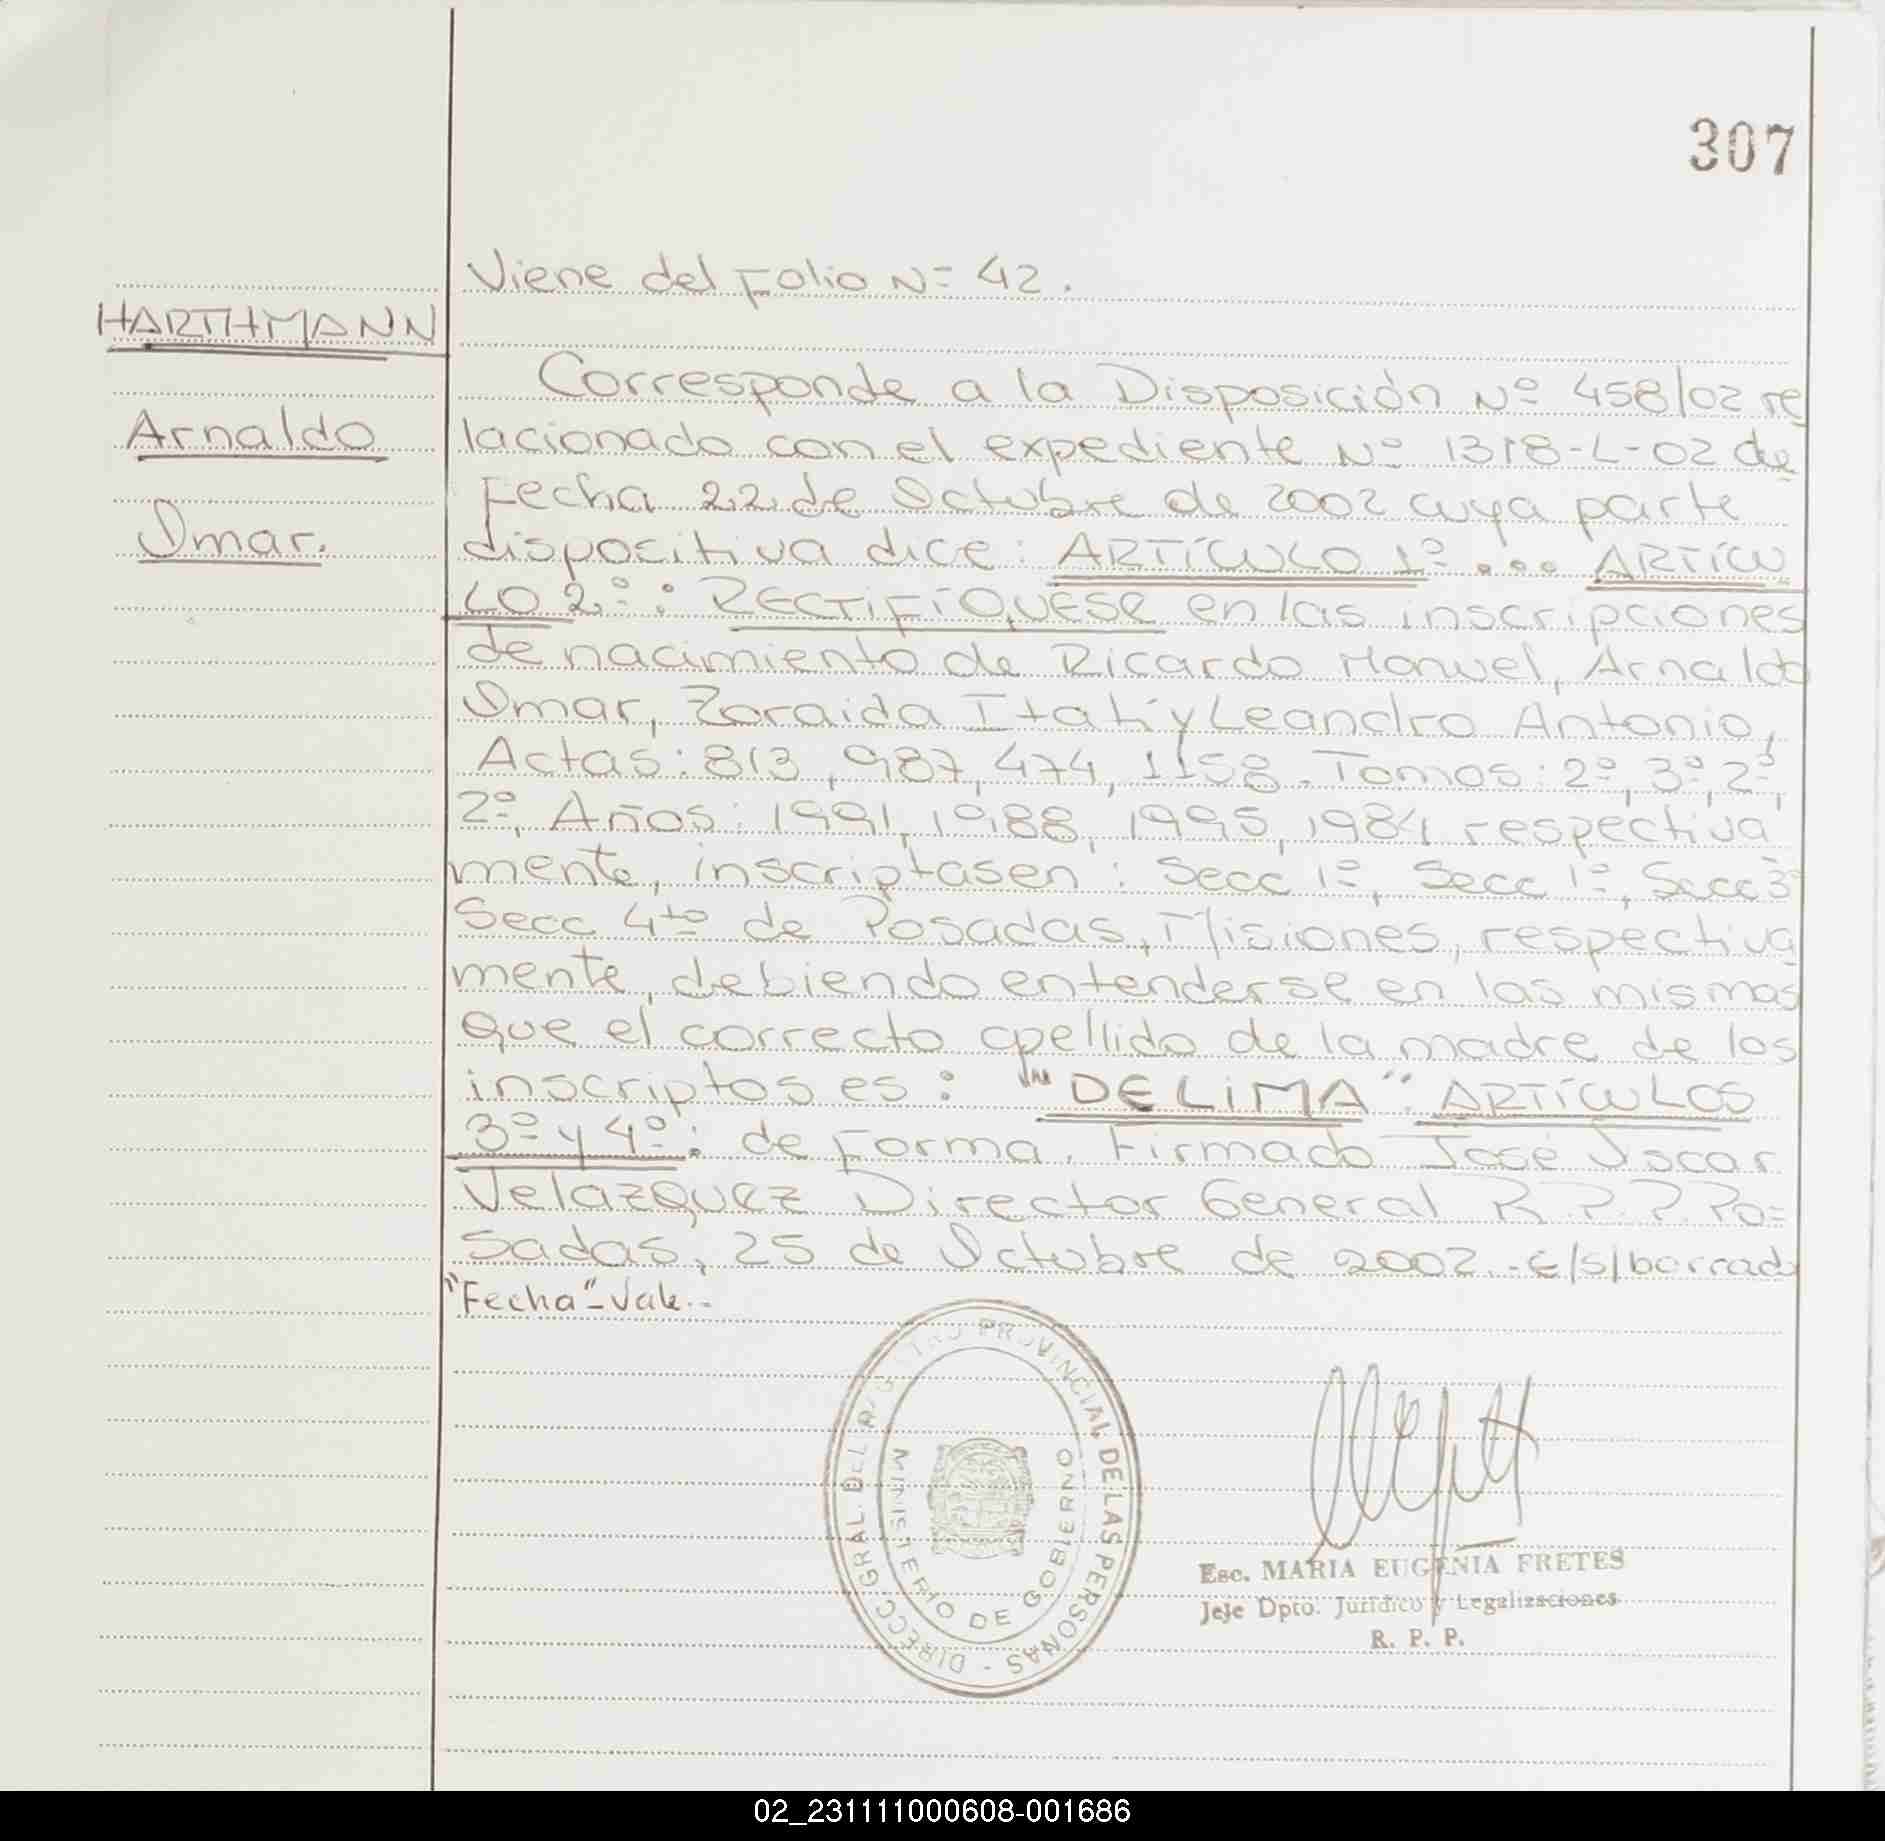 307
Viene del Folio Nº 42.
HARTHMANN
Arnaldo
Omar.
Corresponde a la Disposición Nº 458/02 re
lacionado con el expediente Nº 1318-L-02 de
Fecha 22 de Octubre de 2002 cuya parte
dispositiva dice: ARTÍCULO 1º... ARTÍCU
LO 2º: RECTIFÍQUESE en las inscripciones
de nacimiento de Ricardo Manuel, Arnaldo
Omar, Zoraida Itatí y Leandro Antonio,
Actas: 813, 987, 474, 1158. Tomos: 2º, 3º, 2º,
2º, Años: 1991, 1988, 1995, 1984 respectiva
mente, inscriptas en: Secc 1º, Secc 1º, Secc 3º
Secc 4to de Posadas, Misiones, respectiva
mente, debiendo entenderse en las mismas
que el correcto apellido de la madre de los
inscriptos es: "DE LIMA". ARTÍCULOS
3º y 4º: de Forma. Firmado José Oscar
Velazquez Director General R.P.P. Po=
sadas, 25 de Octubre de 2002.-E/S/borrado
"Fecha"-Vale.-
DIRECC GRAL DEL REGISTRO PROVINCIAL DE LAS PERSONAS -
MINISTERIO DE GOBIERNO
Esc. MARIA EUGENIA FRETES
Jefe Dpto. Jurídico y Legalizaciones
R. P. P.
02_231111000608-001686